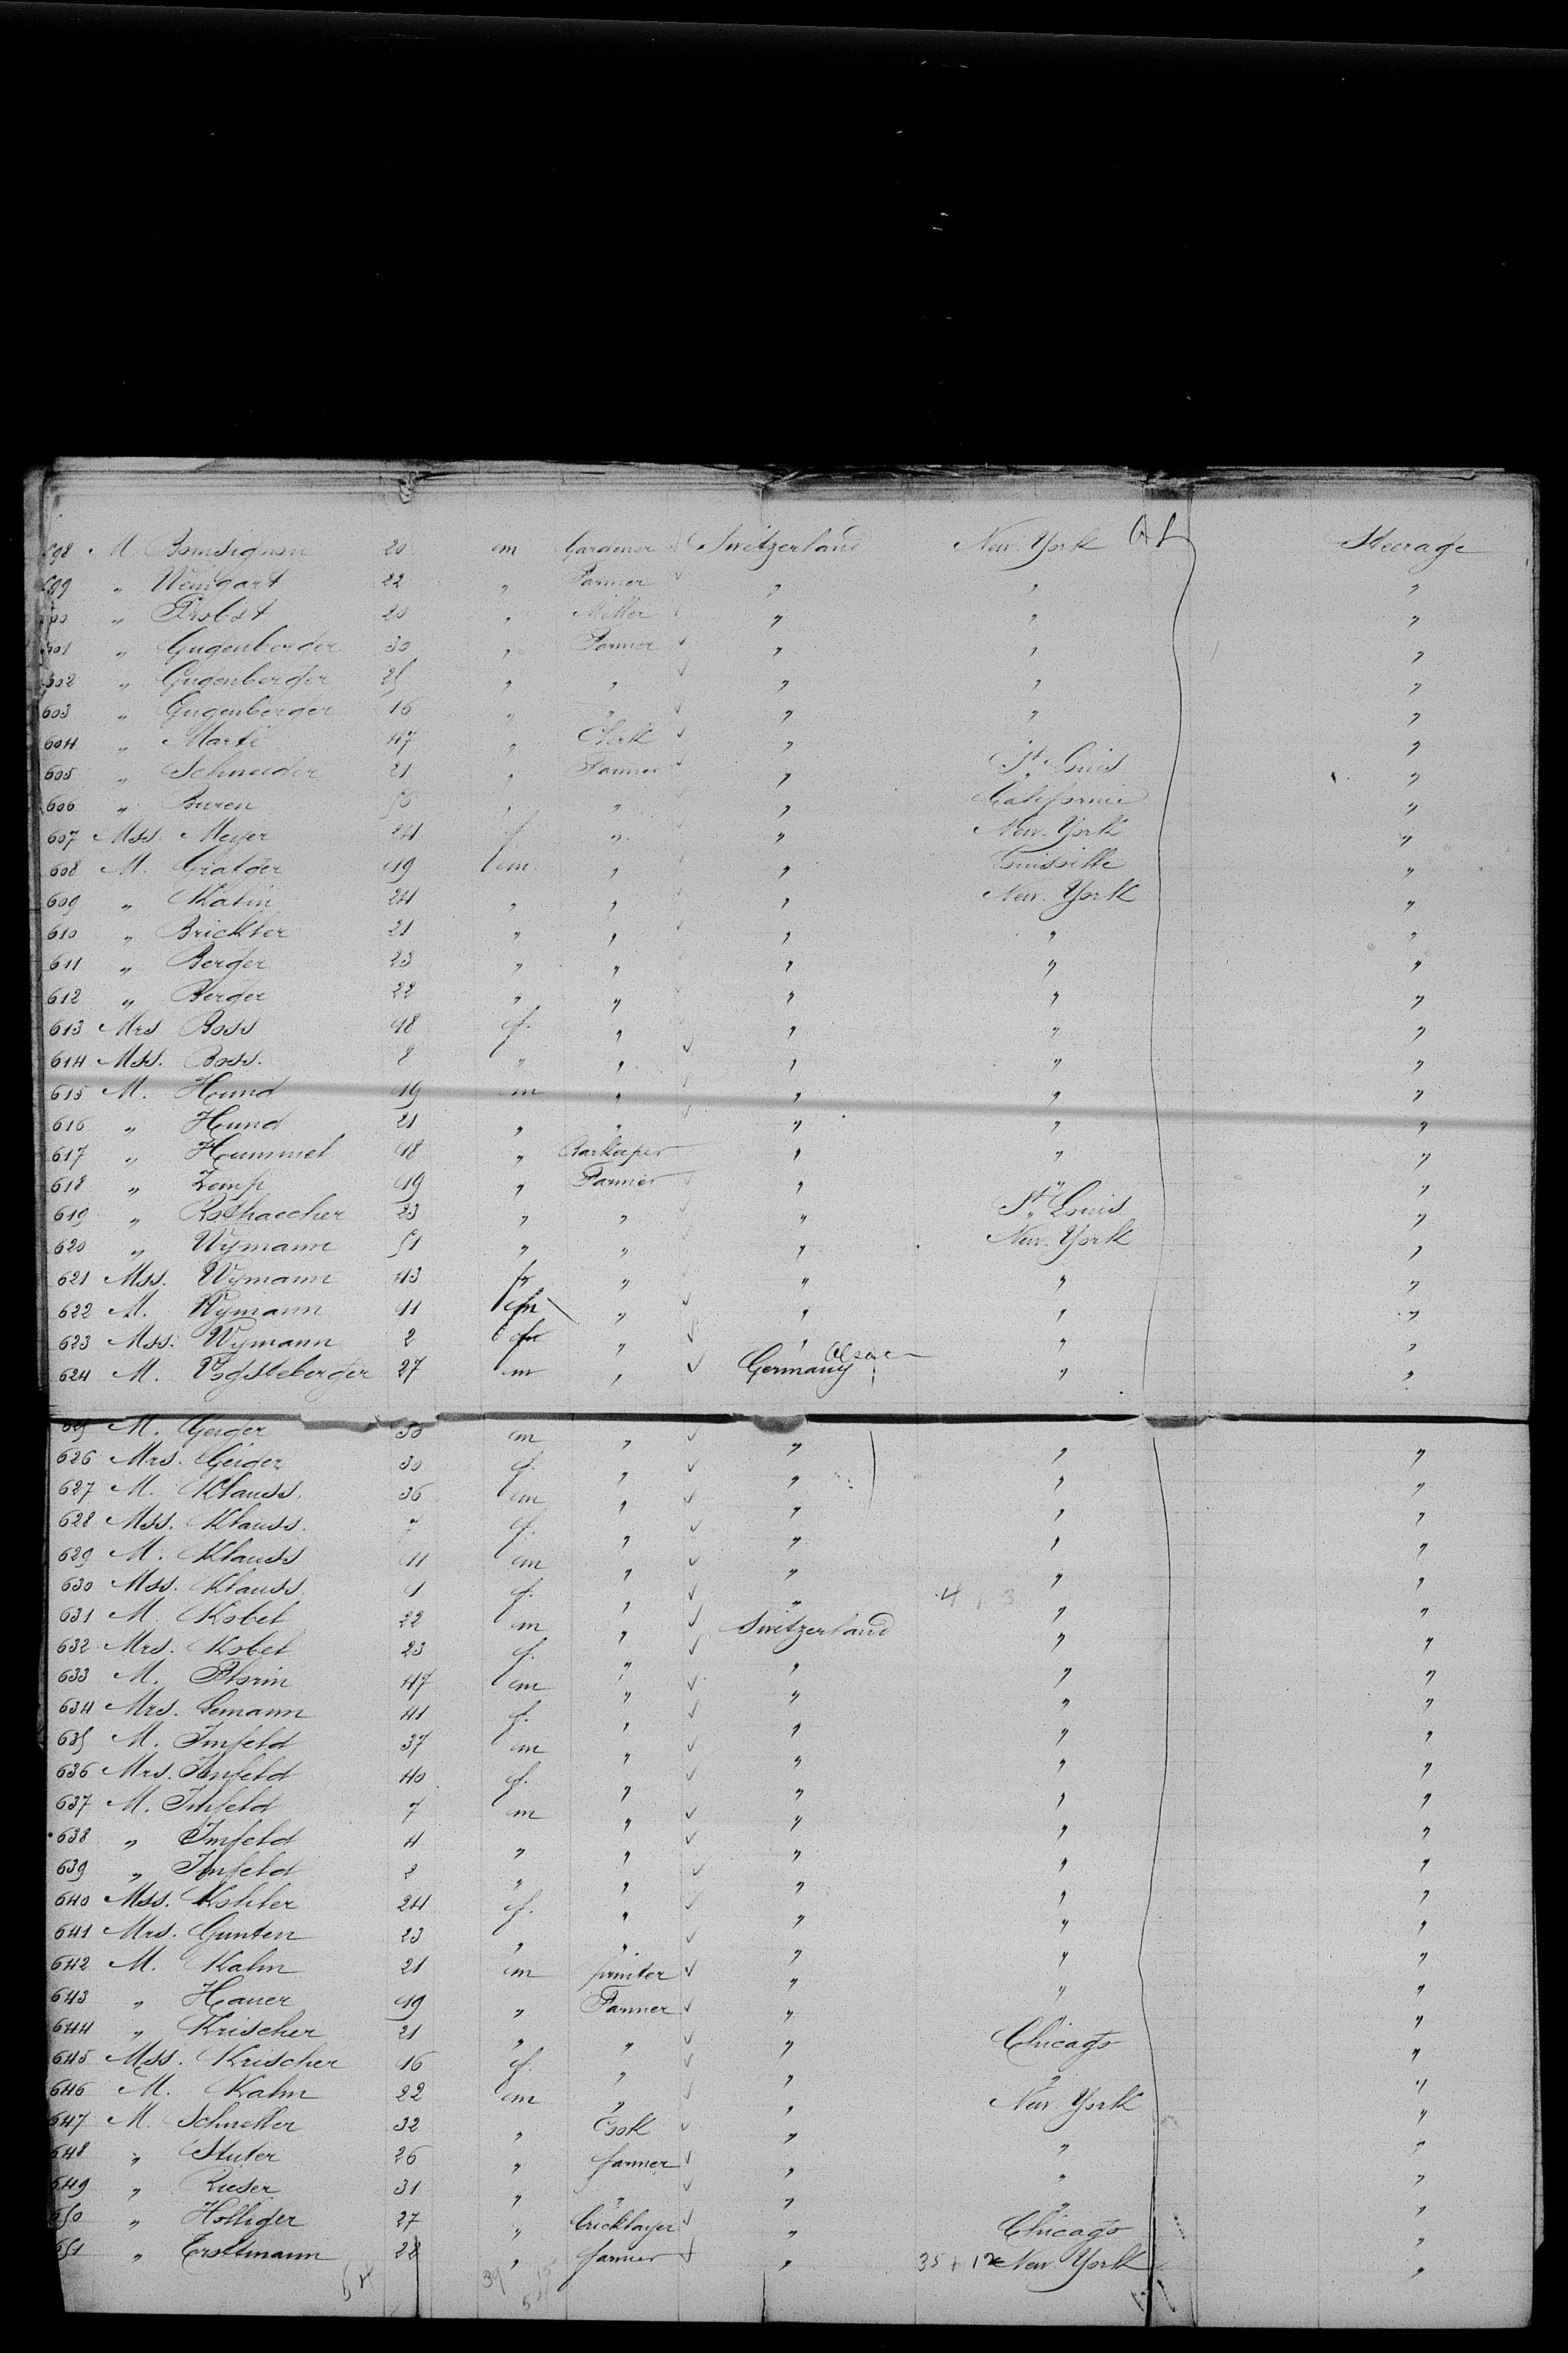 598 M. Bomsignon 20 m Gardener Switzerland New-York Steerage
599 " Weingart 22 " Farmer " " "
600 " Probst 20 " Miller " " "
601 " Gugenberger 30 " Farmer " " "
602 " Gugenberger 25 " " " " "
603 " Gugenberger 16 " " " " "
604 " Marti 47 " Clerk " " "
605 " Schneider 21 " Farmer " St. Louis "
606 " Buren 56 " " " Californie "
607 Mss. Meyer 24 f " " New-York "
608 M. Grat 19 m " " Louisville "
609 " Kälin 24 " " " New-York "
610 " Brickler 21 " " " " "
611 " Berger 23 " " " " "
612 " Berger 22 " " " " "
613 Mrs Boss 48 f. " " " "
614 Mss. Boss. 8 " " " " "
615 M. Hund 19 m " " " "
616 " Hund 21 " " " " "
617 " Hummel 18 " Barkeeper " " "
618 " Zemp 19 " Farmer " " "
619 " Rothaecher 23 " " " St. Louis "
620 " Wymann 51 " " " New-York "
621 Mss. Wymann 43 f " " " "
622 M. Wymann 11 m " " " "
623 Mss. Wymann 2 f " " " "
624 M. Vogsteberger 27 m " Germany Alsace " "
625 M. Geiger 30 m " " " "
626 Mrs. Geiger 30 f. " " " "
627 M. Klauss. 36 m " " " "
628 Mss. Klauss. 7 f. " " " "
629 M. Klauss 11 m " " " "
630 Mss. Klauss. 1 f. " " " "
631 M. Kobel 22 m " Switzerland " "
632 Mrs. Kobel 23 f. " " " "
633 M. Florin 47 m " " " "
634 Mrs. Lemann 41 f. " " " "
635 M. Imfeld 37 m " " " "
636 Mrs. Imfeld 40 f. " " " "
637 M. Imfeld 7 m " " " "
638 " Imfeld 4 " " " " "
639 " Imfeld 2 " " " " "
640 Mss. Kohler 24 f. " " " "
641 Mrs. Gunten 23 " " " " "
642 M. Kalm 21 m printer " " "
643 " Hauer 19 " Farmer " " "
644 " Krischer 21 " " " Chicago "
645 Mss. Krischer 16 f. " " " "
646 M. Kalm 22 m " " New-York "
647 M. Schneller 32 " Cook " " "
648 " Stuter 26 " farmer " " "
649 " Rieser 31 " " " " "
650 " Holliger 27 " bricklayer " Chicago "
651 " Trottmann 28 " farmer " New-York "